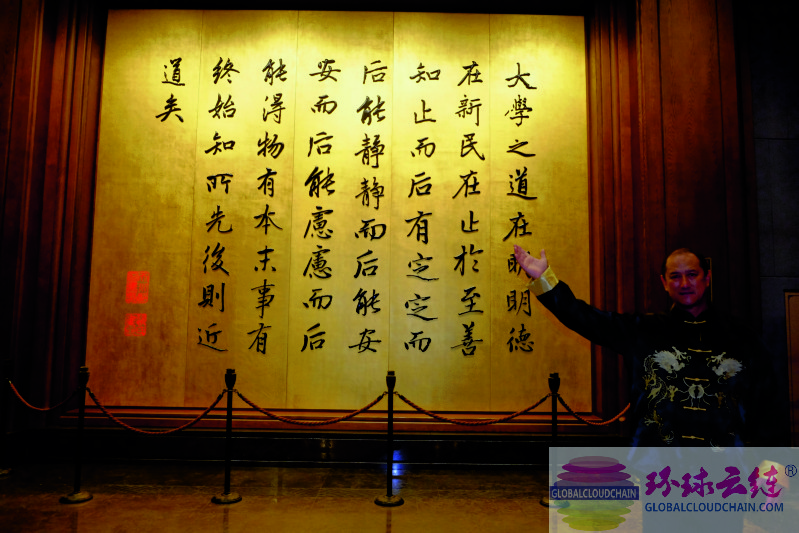 大學之道在明明德
在新民在止於至善
知止而后有定定而
后能靜靜而后能安
安而后能慮慮而后
能得物有本末事有
終始知所先後則近
道矣
GLOBALCLOUDCHAIN
环球云链®
GLOBALCLOUDCHAIN.COM